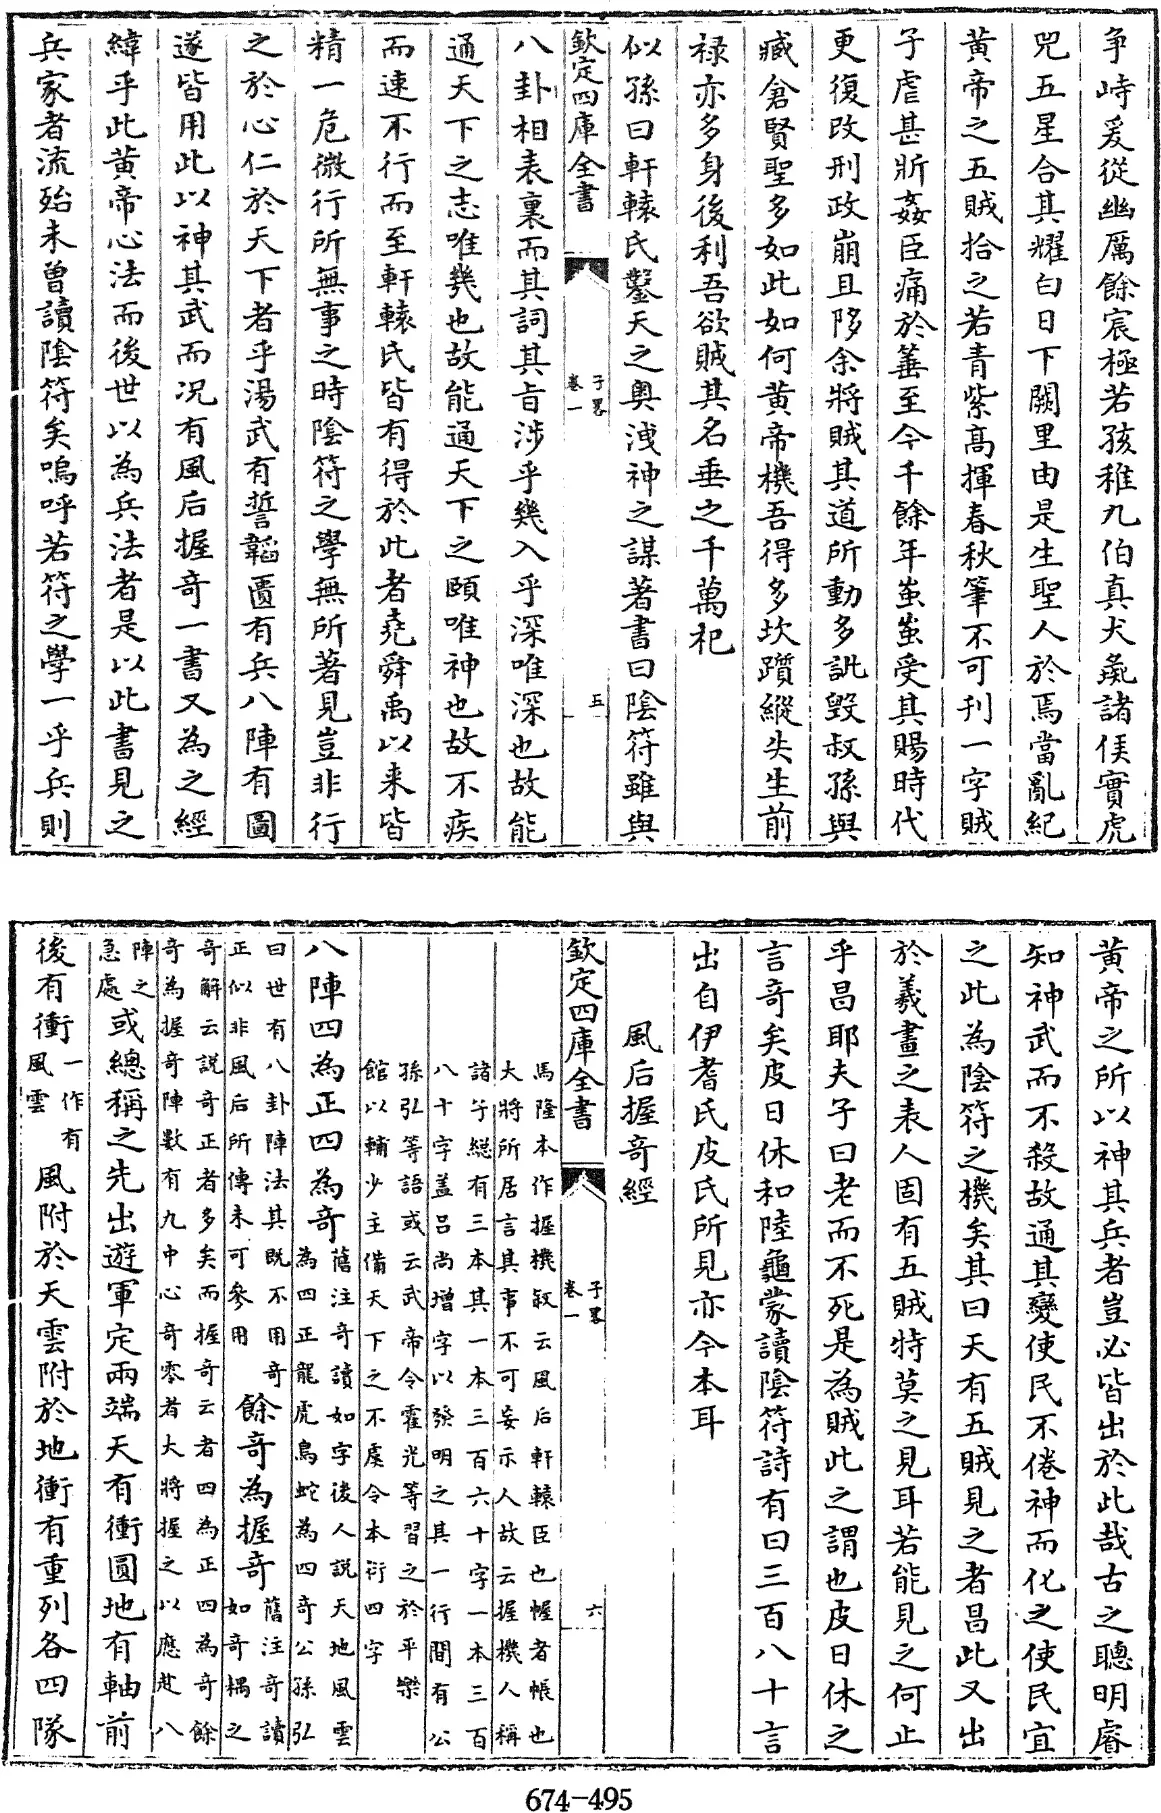 争峙爰從幽厲餘宸極若孩稚九伯真犬彘諸侯實虎
兕五星合其耀白日下闕里由是生聖人於焉當亂紀
黃帝之五賊拾之若青紫高揮春秋筆不可刊一字賊
子虐甚斨姦臣痛於箠至今千餘年蚩蚩受其賜時代
更復改刑政崩且陊余將賊其道所動多訿毀叔孫與
臧倉賢聖多如此如何黃帝機吾得多坎躓縱失生前
祿亦多身後利吾欲賊其名垂之千萬祀
似孫曰軒轅氏鑿天之奧洩神之謀著書曰陰符雖與
欽定四庫全書
子畧
卷一
五
八卦相表裏而其詞其旨涉乎幾入乎深唯深也故能
通天下之志唯幾也故能通天下之賾唯神也故不疾
而速不行而至軒轅氏皆有得於此者堯舜禹以来皆
精一危微行所無事之時陰符之學無所著見豈非行
之於心仁於天下者乎湯武有誓韜匱有兵八陣有圖
遂皆用此以神其武而况有風后握奇一書又為之經
緯乎此黃帝心法而後世以為兵法者是以此書見之
兵家者流殆未曾讀陰符矣嗚呼若符之學一乎兵則
黃帝之所以神其兵者豈必皆出於此哉古之聰明睿
知神武而不殺故通其變使民不倦神而化之使民宜
之此為陰符之機矣其曰天有五賊見之者昌此又出
於羲畫之表人固有五賊特莫之見耳若能見之何止
乎昌耶夫子曰老而不死是為賊此之謂也皮日休之
言奇矣皮日休和陸龜蒙讀陰符詩有曰三百八十言
出自伊耆氏皮氏所見亦今本耳
風后握奇經
欽定四庫全書
子畧
卷一
六
馬隆本作握機叙云風后軒轅臣也幄者帳也
大將所居言其事不可妄示人故云握機人稱
諸子緫有三本其一本三百六十字一本三百
八十字盖吕尚增字以發明之其一行間有公
孫弘等語或云武帝令霍光等習之於平樂
館以輔少主備天下之不虞今本衍四字
八陣四為正四為奇舊注奇讀如字後人説天地風雲
為四正龍虎鳥蛇為四奇公孫弘
曰世有八卦陣法其既不用奇
正似非風后所傳未可參用餘奇為握奇舊注奇讀
如奇耦之
奇解云説奇正者多矣而握奇云者四為正四為奇餘
奇為握奇陣數有九中心奇零者大將握之以應赴八
陣之
急處或總稱之先出遊軍定兩端天有衝圓地有軸前
後有衝一作有
風雲風附於天雲附於地衝有重列各四隊
674-495